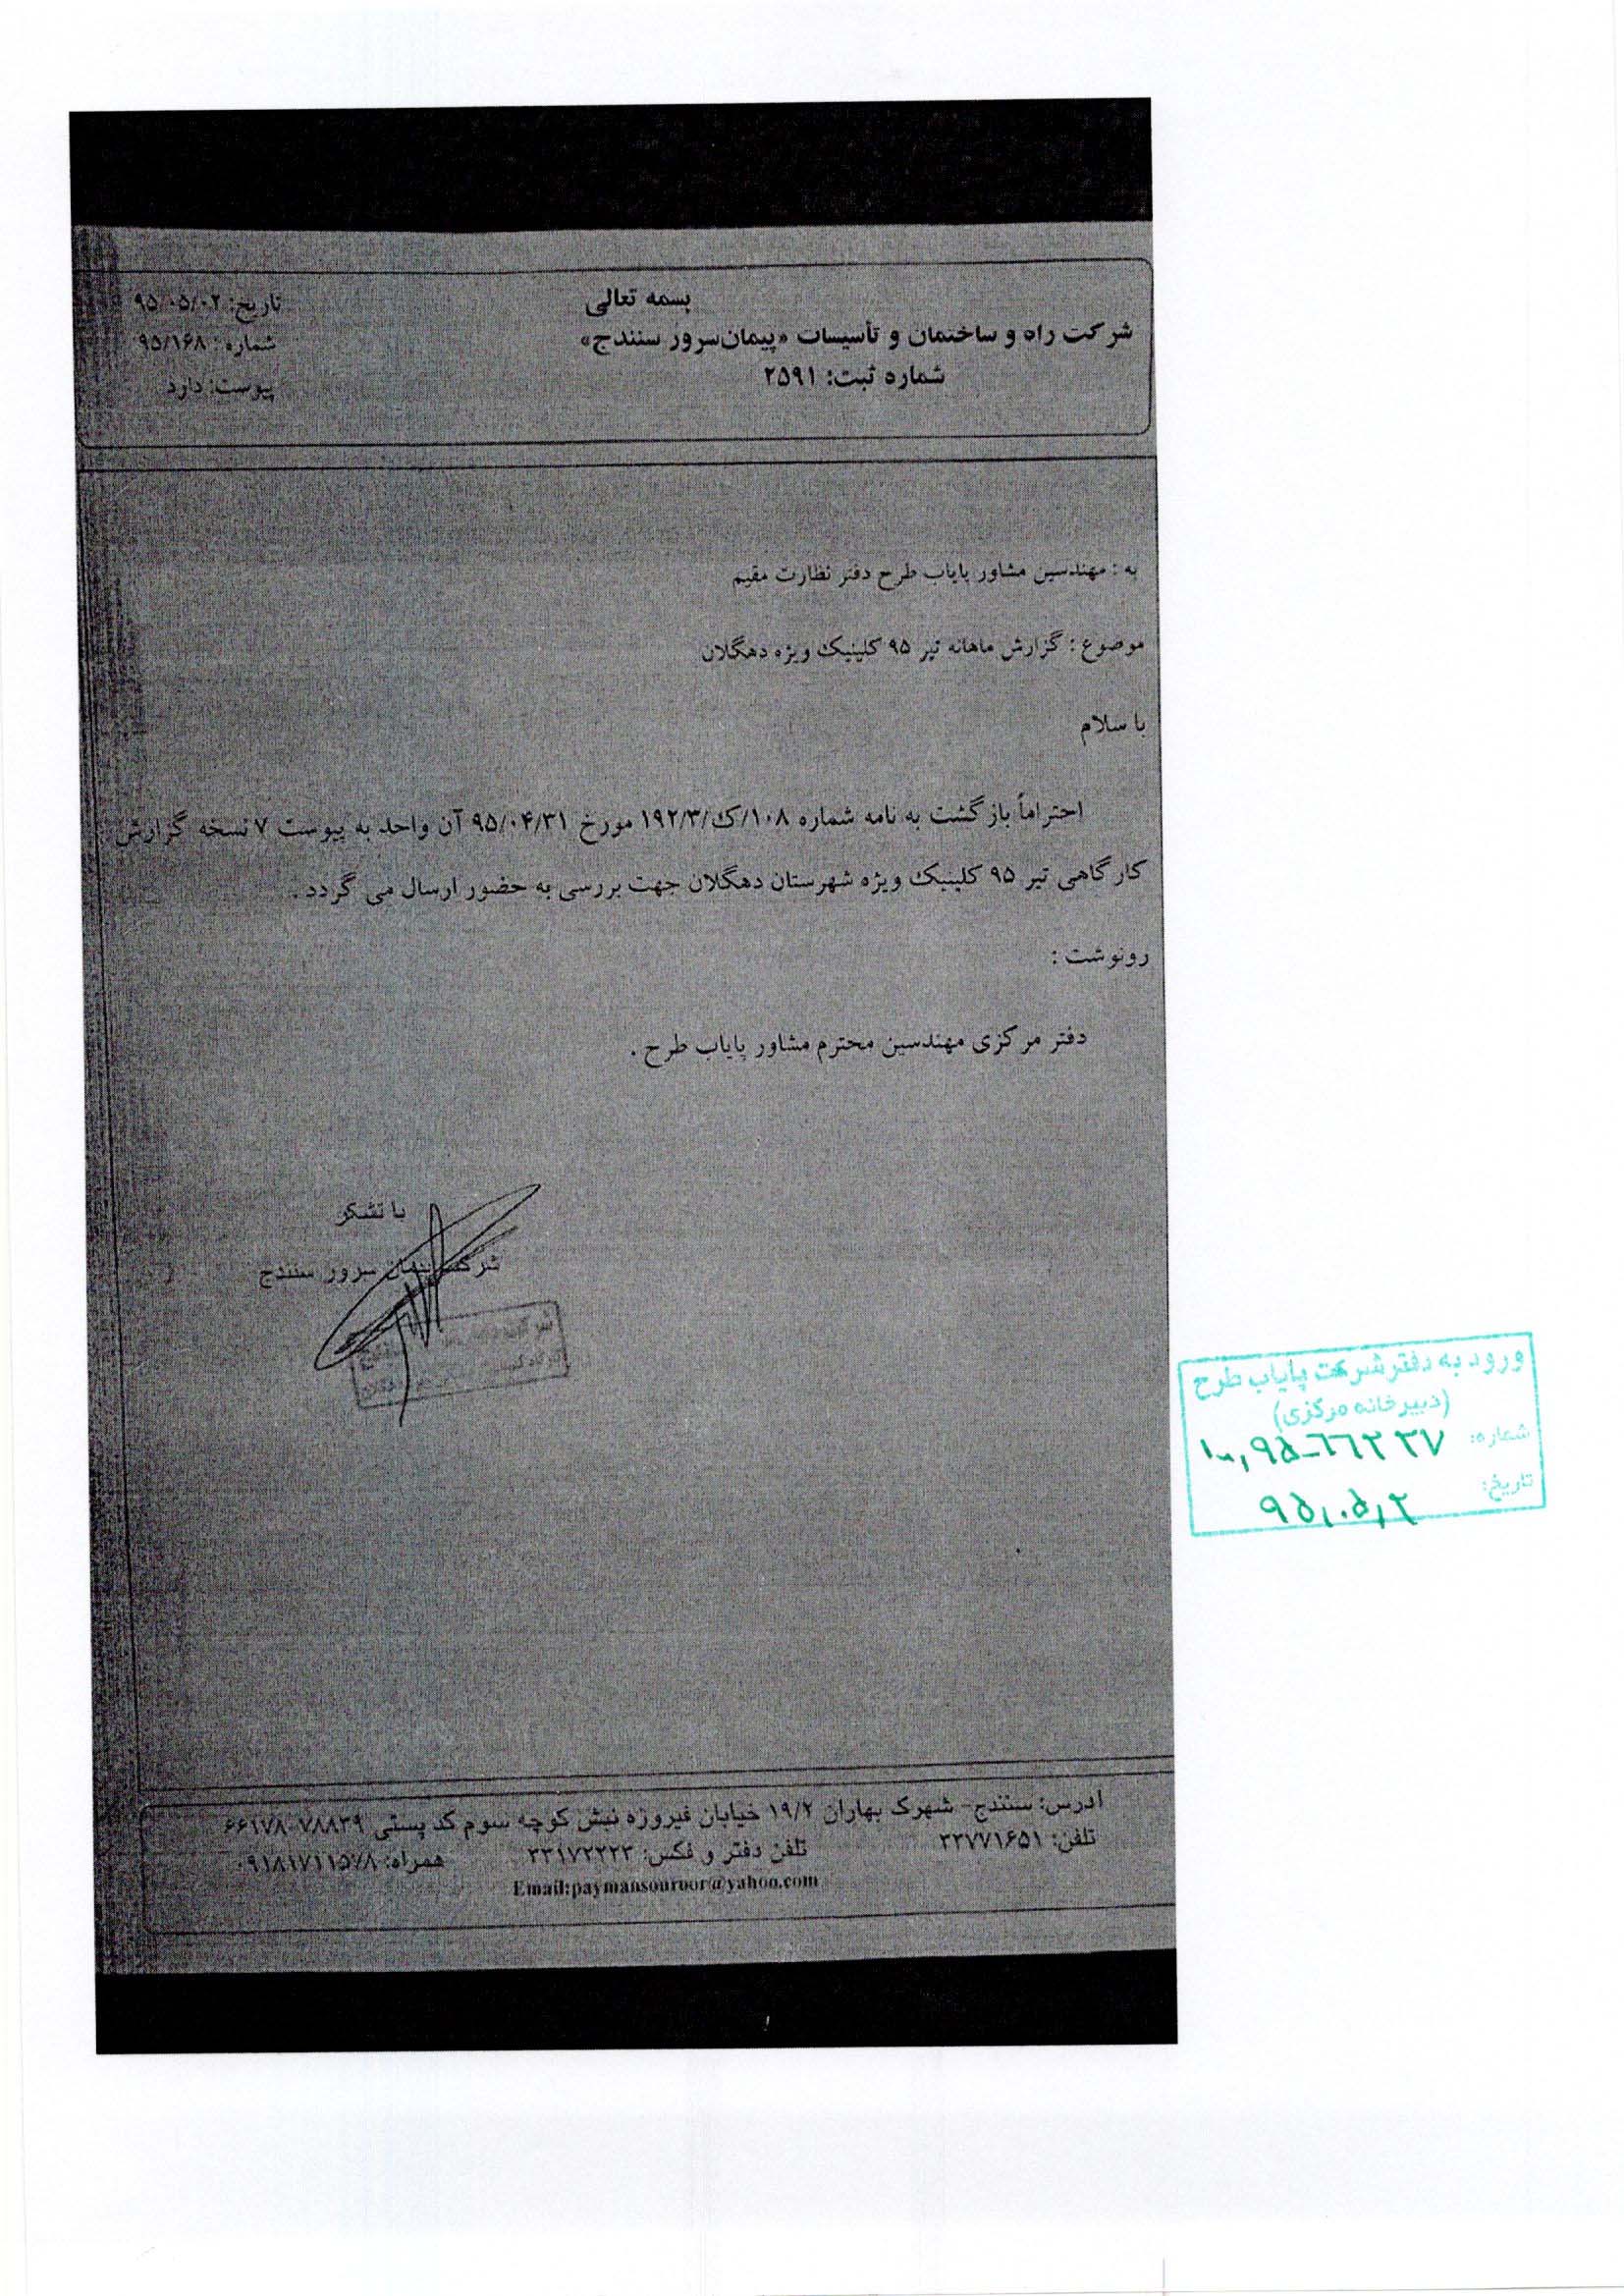 بسمه تعالی
شرکت راه و ساختمان و تأسیسات «پیمان‌سرور سنندج»
شماره ثبت: ۲۵۹۱
تاریخ: ۹۵/۰۵/۰۲
شماره: ۹۵/۱۶۸
پیوست: دارد
به : مهندسین مشاور پایاب طرح دفتر نظارت مقیم
موضوع : گزارش ماهانه تیر ۹۵ کلینیک ویژه دهگلان
با سلام
احتراماً بازگشت به نامه شماره ۱۰۸/ک/۱۹۲/۳ مورخ ۹۵/۰۴/۳۱ آن واحد به پیوست ۷ نسخه گزارش
کارگاهی تیر ۹۵ کلینیک ویژه شهرستان دهگلان جهت بررسی به حضور ارسال می گردد .
رونوشت :
دفتر مرکزی مهندسین محترم مشاور پایاب طرح .
با تشکر
شرکت پیمان سرور سنندج
ورود به دفتر شرکت پایاب طرح
(دبیرخانه مرکزی)
شماره: ۹۵-۶۶۲۳۷
تاریخ: ۹۵,۰۵,۲
آدرس: سنندج- شهرک بهاران ۱۹/۲ خیابان فیروزه نبش کوچه سوم کد پستی ۷۸۸۳۹-۶۶۱۷۸
تلفن: ۳۳۷۷۱۶۵۱ تلفن دفتر و فکس: ۳۳۱۷۲۲۲۳ همراه: ۰۹۱۸۱۷۱۱۵۷۸
Email:paymansouroor@yahoo.com